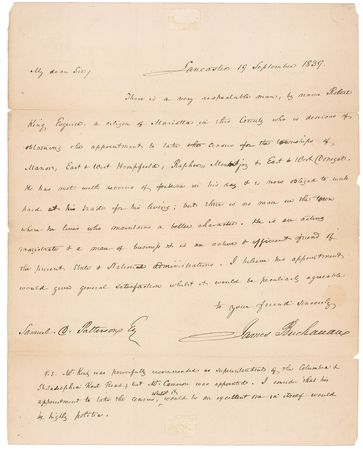 Lancaster 19 September 1839.
My dear Sir/
There is a very respectable man, by name Robert
King, Esquire, a citizen of Marietta in this County who is desirous of
obtaining the appointment to take the census for the townships of
Manor, East & West Hempfield, Raphoe, Mountjoy & East & West Donegal.
He has not much means of fortune in his way & is now obliged to work
hard at his trade for his living; but there is no man in the town
where he lives who maintains a better character. He is an acting
magistrate & a man of business & is an active & efficient friend of
the present State & National administrations. I believe his appointment
would give general satisfaction whilst it would be peculiarly agreeable
to your friend sincerely
James Buchanan
Samuel D. Patterson Esq
P.S. Mr King was powerfully recommended as Superintendent of the Columbia &
Philadelphia Rail Road; but Mr Cameron was appointed. I consider that his
appointment to take the census, whilst it would be an excellent one in itself would
be highly politic.